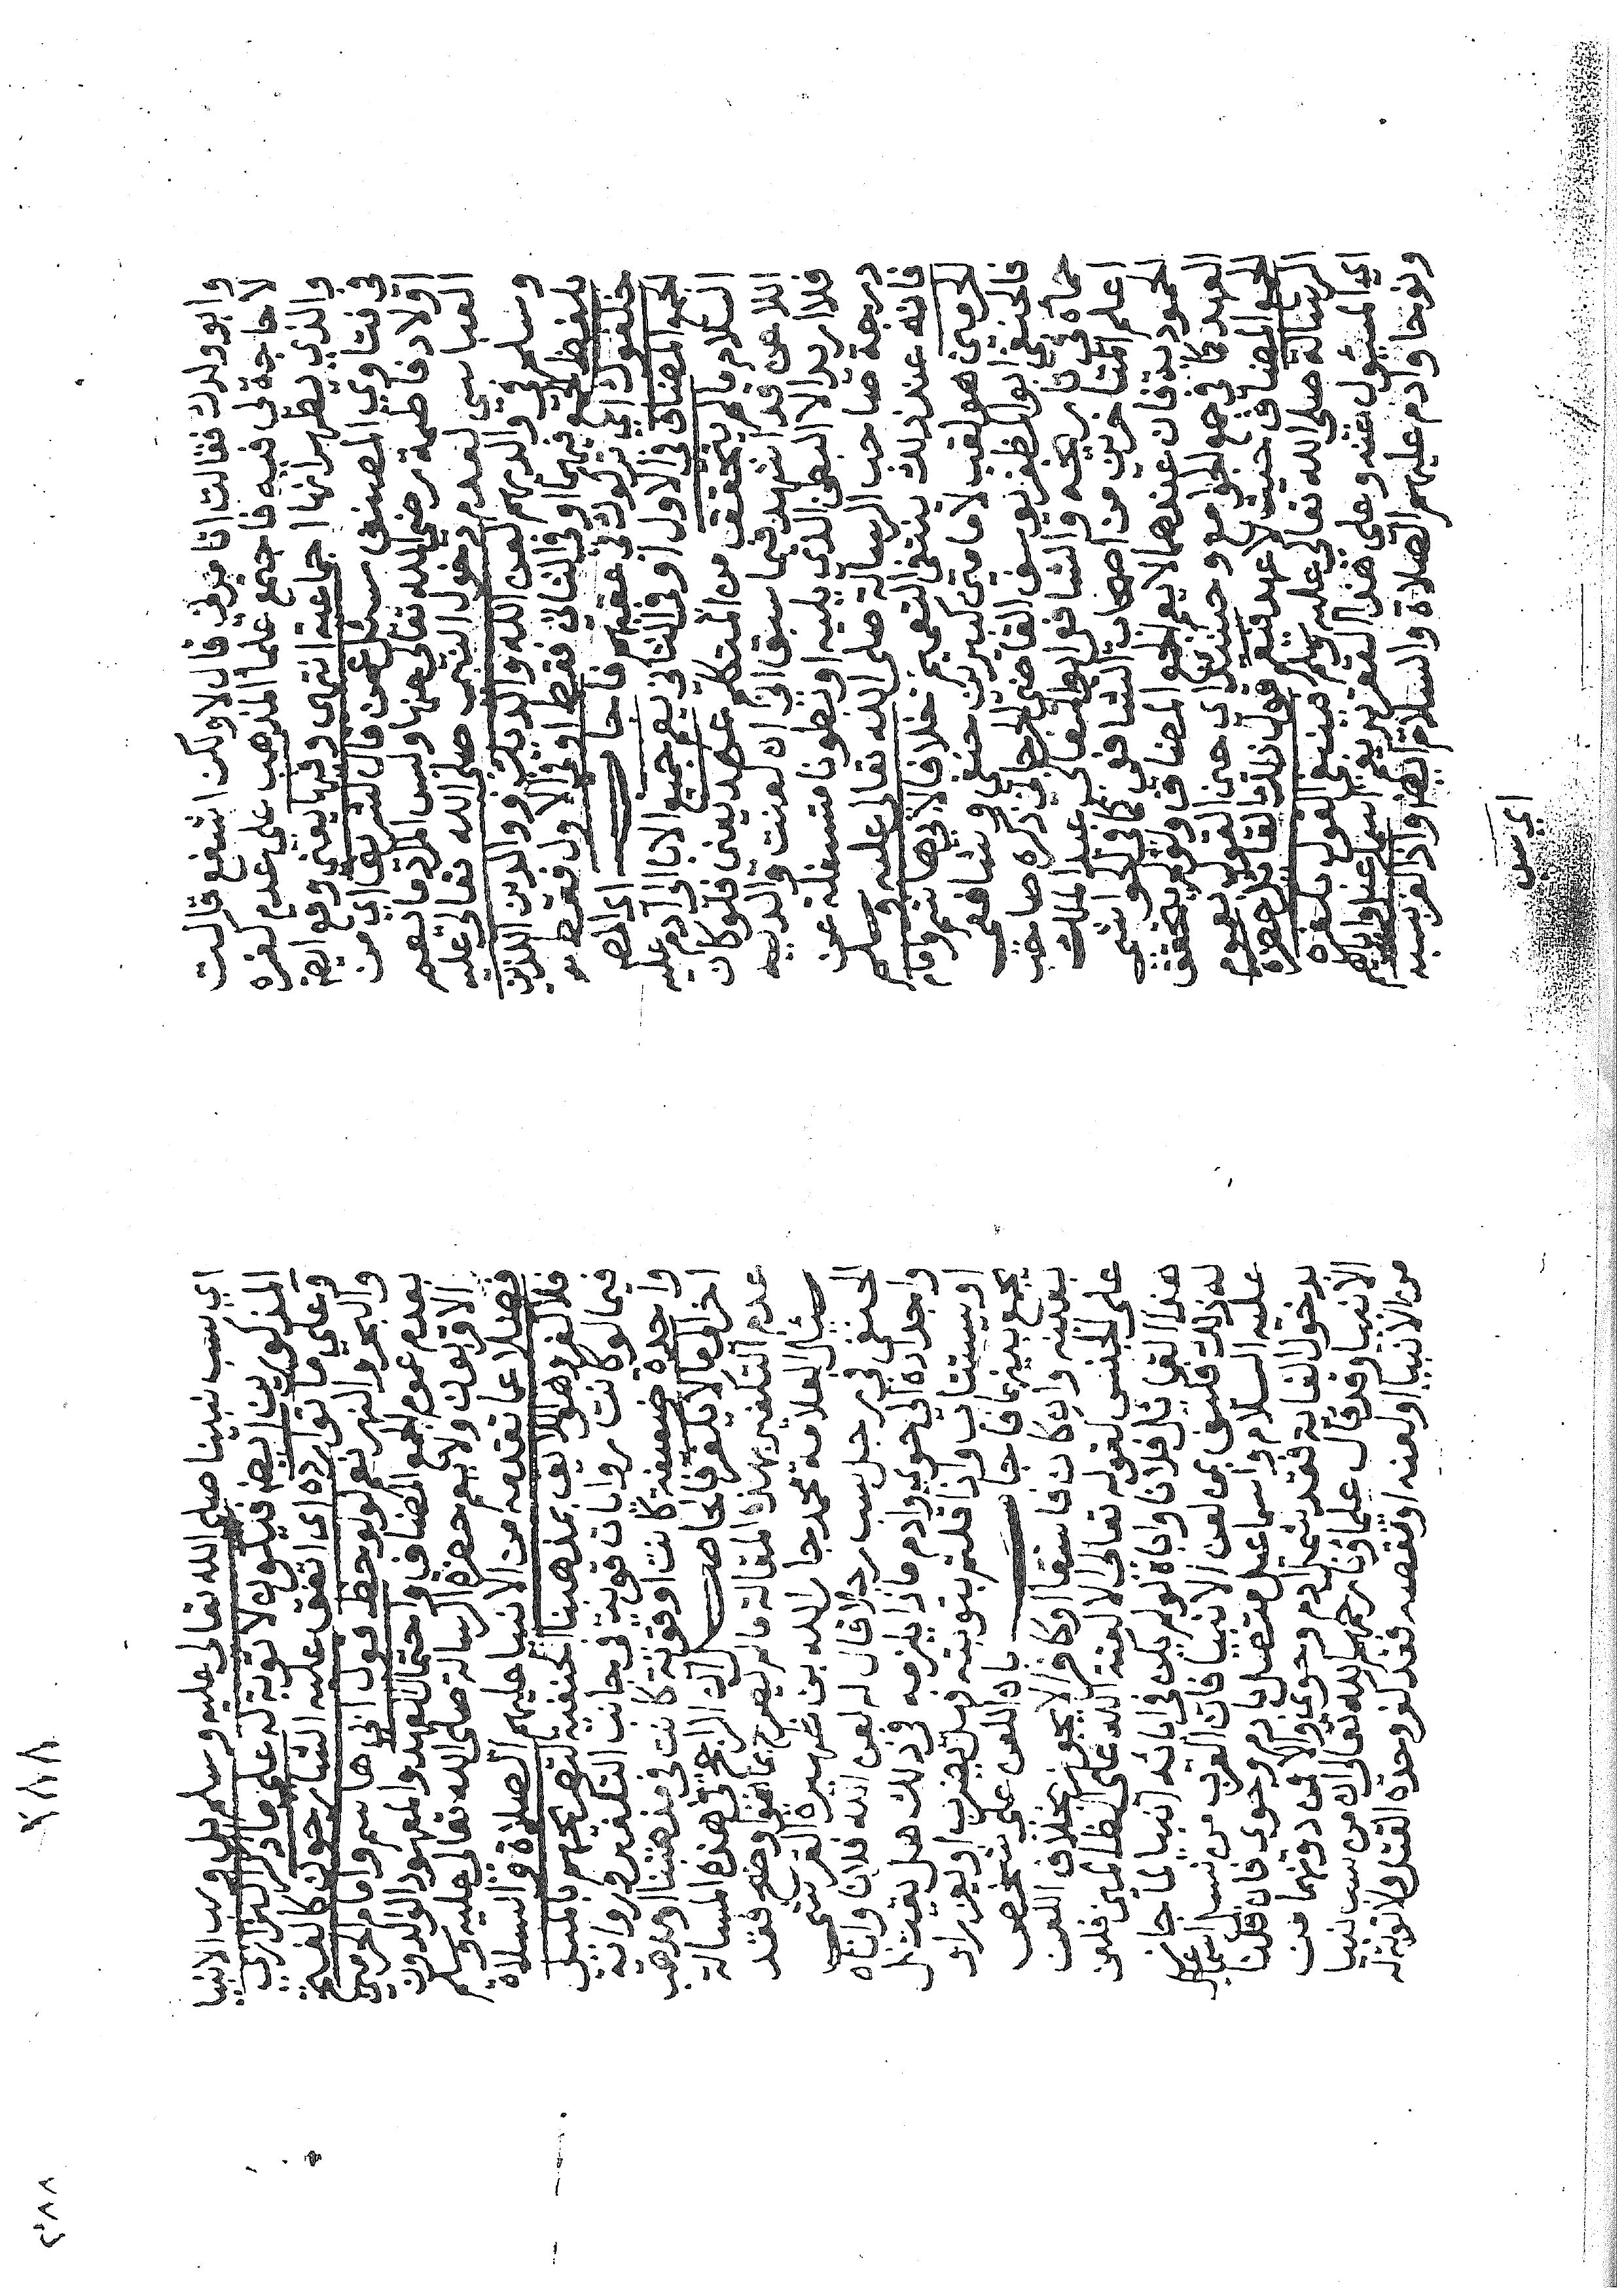 وابو ولدك فقالت انا مزني قال لا ولكن اشفع قالت
لا حاجة لي فيه فاجمع علما المذهب على عدم كفره
والذي يظهر انها اجماعية انتهى وفيها يعني وقع ايضا
في فتاوي المصنف سئل عمن قال لشريف اي من
اولاد فاطمة رضي الله تعالى عنها وليس المراد ما يعم
العباسي لعدم دخول النبي صلى الله تعالى عليه
وسلم في والديهم لعن الله والديك ووالدين الذين
خلفوك اي تركوك في عقبهم فاجاب اي المص
الجمع المضاف في الاول او في الثاني يعم جميع الابا الى آدم عليه
السلام ما لم يتحقق من المتكلم عهد يعني فلو كان
اللاعن قد اشهد فيما سبق اني ان لعنت والديه
فلا اريد الا البطن الذي يليه او بطونا متسفلة عن
درجة صاحب الرسالة صلى الله تعالى عليه وسلم
فانه عند ذلك ينتفي التعميم خلافا لابي هاشم وامام
الحرمين هو لقب لامامين كبيرين حنفي وشافعي
فالحنفي ابو المظفر يوسف القاضي الجرجاني ذكره صاحب
حماة في تاريخه والشافعي ابو المعالي عبد الملك
اعلم المتاخرين من اصحاب الشافعي كما في الحواشي
الحموديه فان عندهما لا يعم الجمع المضاف ولو لم يتحقق
العهد كما في جمع الجوامع وحينئذ اي حين القول بعموم
الجمع المضاف حيث لا عهد فيعم قول ذلك القائل حضرة
الرسالة صلى الله تعالى عليه وسلم فينبغي القول بكفره
اي المسئول عنه وعلى هذا التقرير يعم اسماعيل وابراهيم
ونوحا وآدم عليهم الصلاة والسلام ايضا واذ الغرض سبه
اي سب
اي سب نبينا صلى الله تعالى عليه وسلم بل وسب الانبيا
المذكورين ايضا فيكون لا توبة له على ما ذكر البزازي
وعلى ما توارده اي اتفق عليه الشارحون كالفتح
والبحر والنهر نعم لو لوحظ قول ابي هاشم وامام الحرمين
بعدم عموم الجمع المضاف واحتمال العهد والمعهود الوالدون
الاقربون ولا يعم حضرة الرسالة صلى الله تعالى عليه وسلم
فضلا عما تقدمه من الانبيا عليهم الصلاة والسلام
فلا كفر وهو اللائق بمذهبنا الحنفية لتصريحهم بالميل
فيما لو كانت روايات قوية في جانب التكفير ورواية
واحدة ضعيفة كانت او قوية كانت في مذهبنا او مذهب
اخر الى ما لا يكفر فالحاصل ان الراجح في هذه المسالة
عدم التكفير بهذه المقالة ما لم يصرح بما هو اوضح فقد
سئل العلامة محمد جار الله بن ظهيرة القرشي
الحنفي في رجل سب رجلا قال له لعن الله فلانا واباه
واجداده الى حوي وادم ماذا يلزمه في ذلك هل يقتل
او يستتاب واذا قلتم بتوبته فهل يضرب او يعزر او
يجمع بينهما فاجاب بان اللعن على شخص
بعينه وان كان فاسقا او كافرا لا يجوز بخلاف اللعن
على الجنس لقوله تعالى الا لعنة الله على الظالمين فلعن
هذا القائل فلانا واباه لو لم يكن في ابائه انبيا لما جاز
له ذلك فكيف بمن لعن الانبيا فان القرب من نسب اسماعيل
عليه السلام واسماعيل متصل بادم وحوي فان قلنا
بدخول الغاية فقد شمل ادم وحوي والا فمن دونهما من
الانبيا وقد قال علماؤنا رحمهم الله تعالى ان من سب نبيا
من الانبيا او لعنه او تنقصه فقد كفر وحده القتل ولا توبة له
٢٨٨
٢٨٨